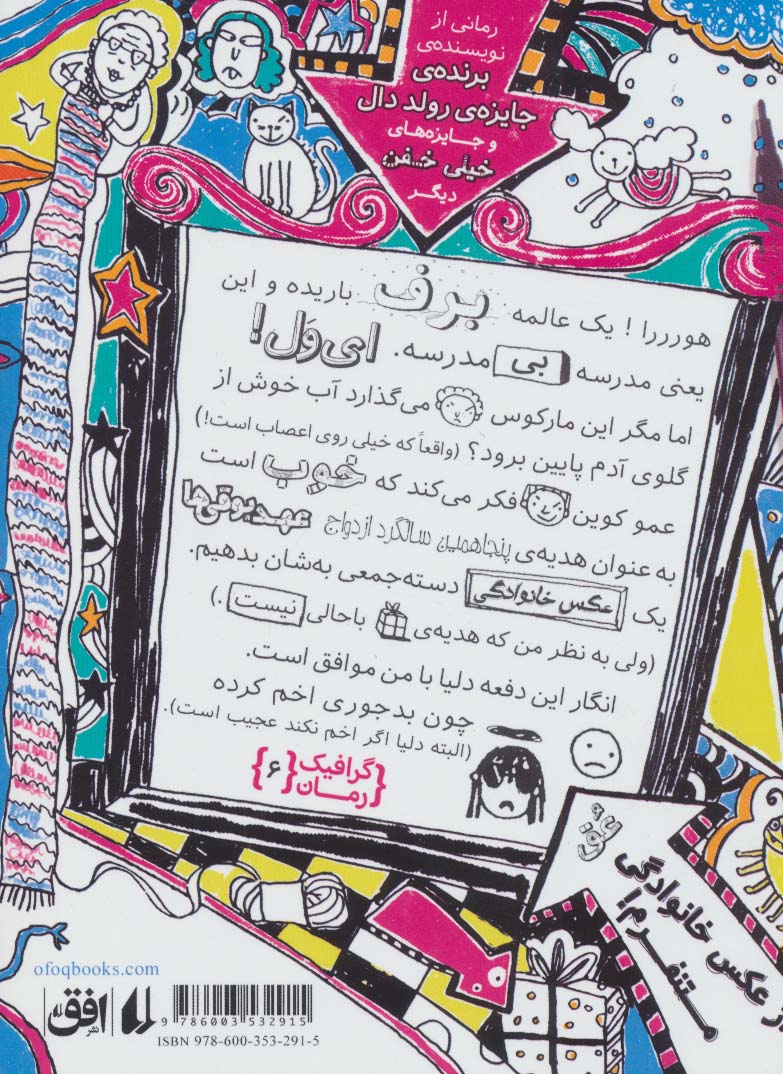 رمانی از
نویسنده‌ی
برنده‌ی
جایزه‌ی رولد دال
و جایزه‌های
خیلی خفن
دیگر
هوررررا! یک عالمه برف باریده و این
یعنی مدرسه بی مدرسه. ای‌وَل!
اما مگر این مارکوس می‌گذارد آب خوش از
گلوی آدم پایین برود؟ (واقعاً که خیلی روی اعصاب است!)
عمو کوین فکر می‌کند که خوب است
به عنوان هدیه‌ی پنجاهمین سالگرد ازدواج عهدبوقی‌ها
یک عکس خانوادگی دسته‌جمعی به‌شان بدهیم.
(ولی به نظر من که هدیه‌ی باحالی نیست.)
انگار این دفعه دلیا با من موافق است.
چون بدجوری اخم کرده
(البته دلیا اگر اخم نکند عجیب است).
گرافیک
رمان
{۶}
عکس خانوادگی
متنفرم!
ofoqbooks.com
نشر افق
9 786003 532915
ISBN 978-600-353-291-5